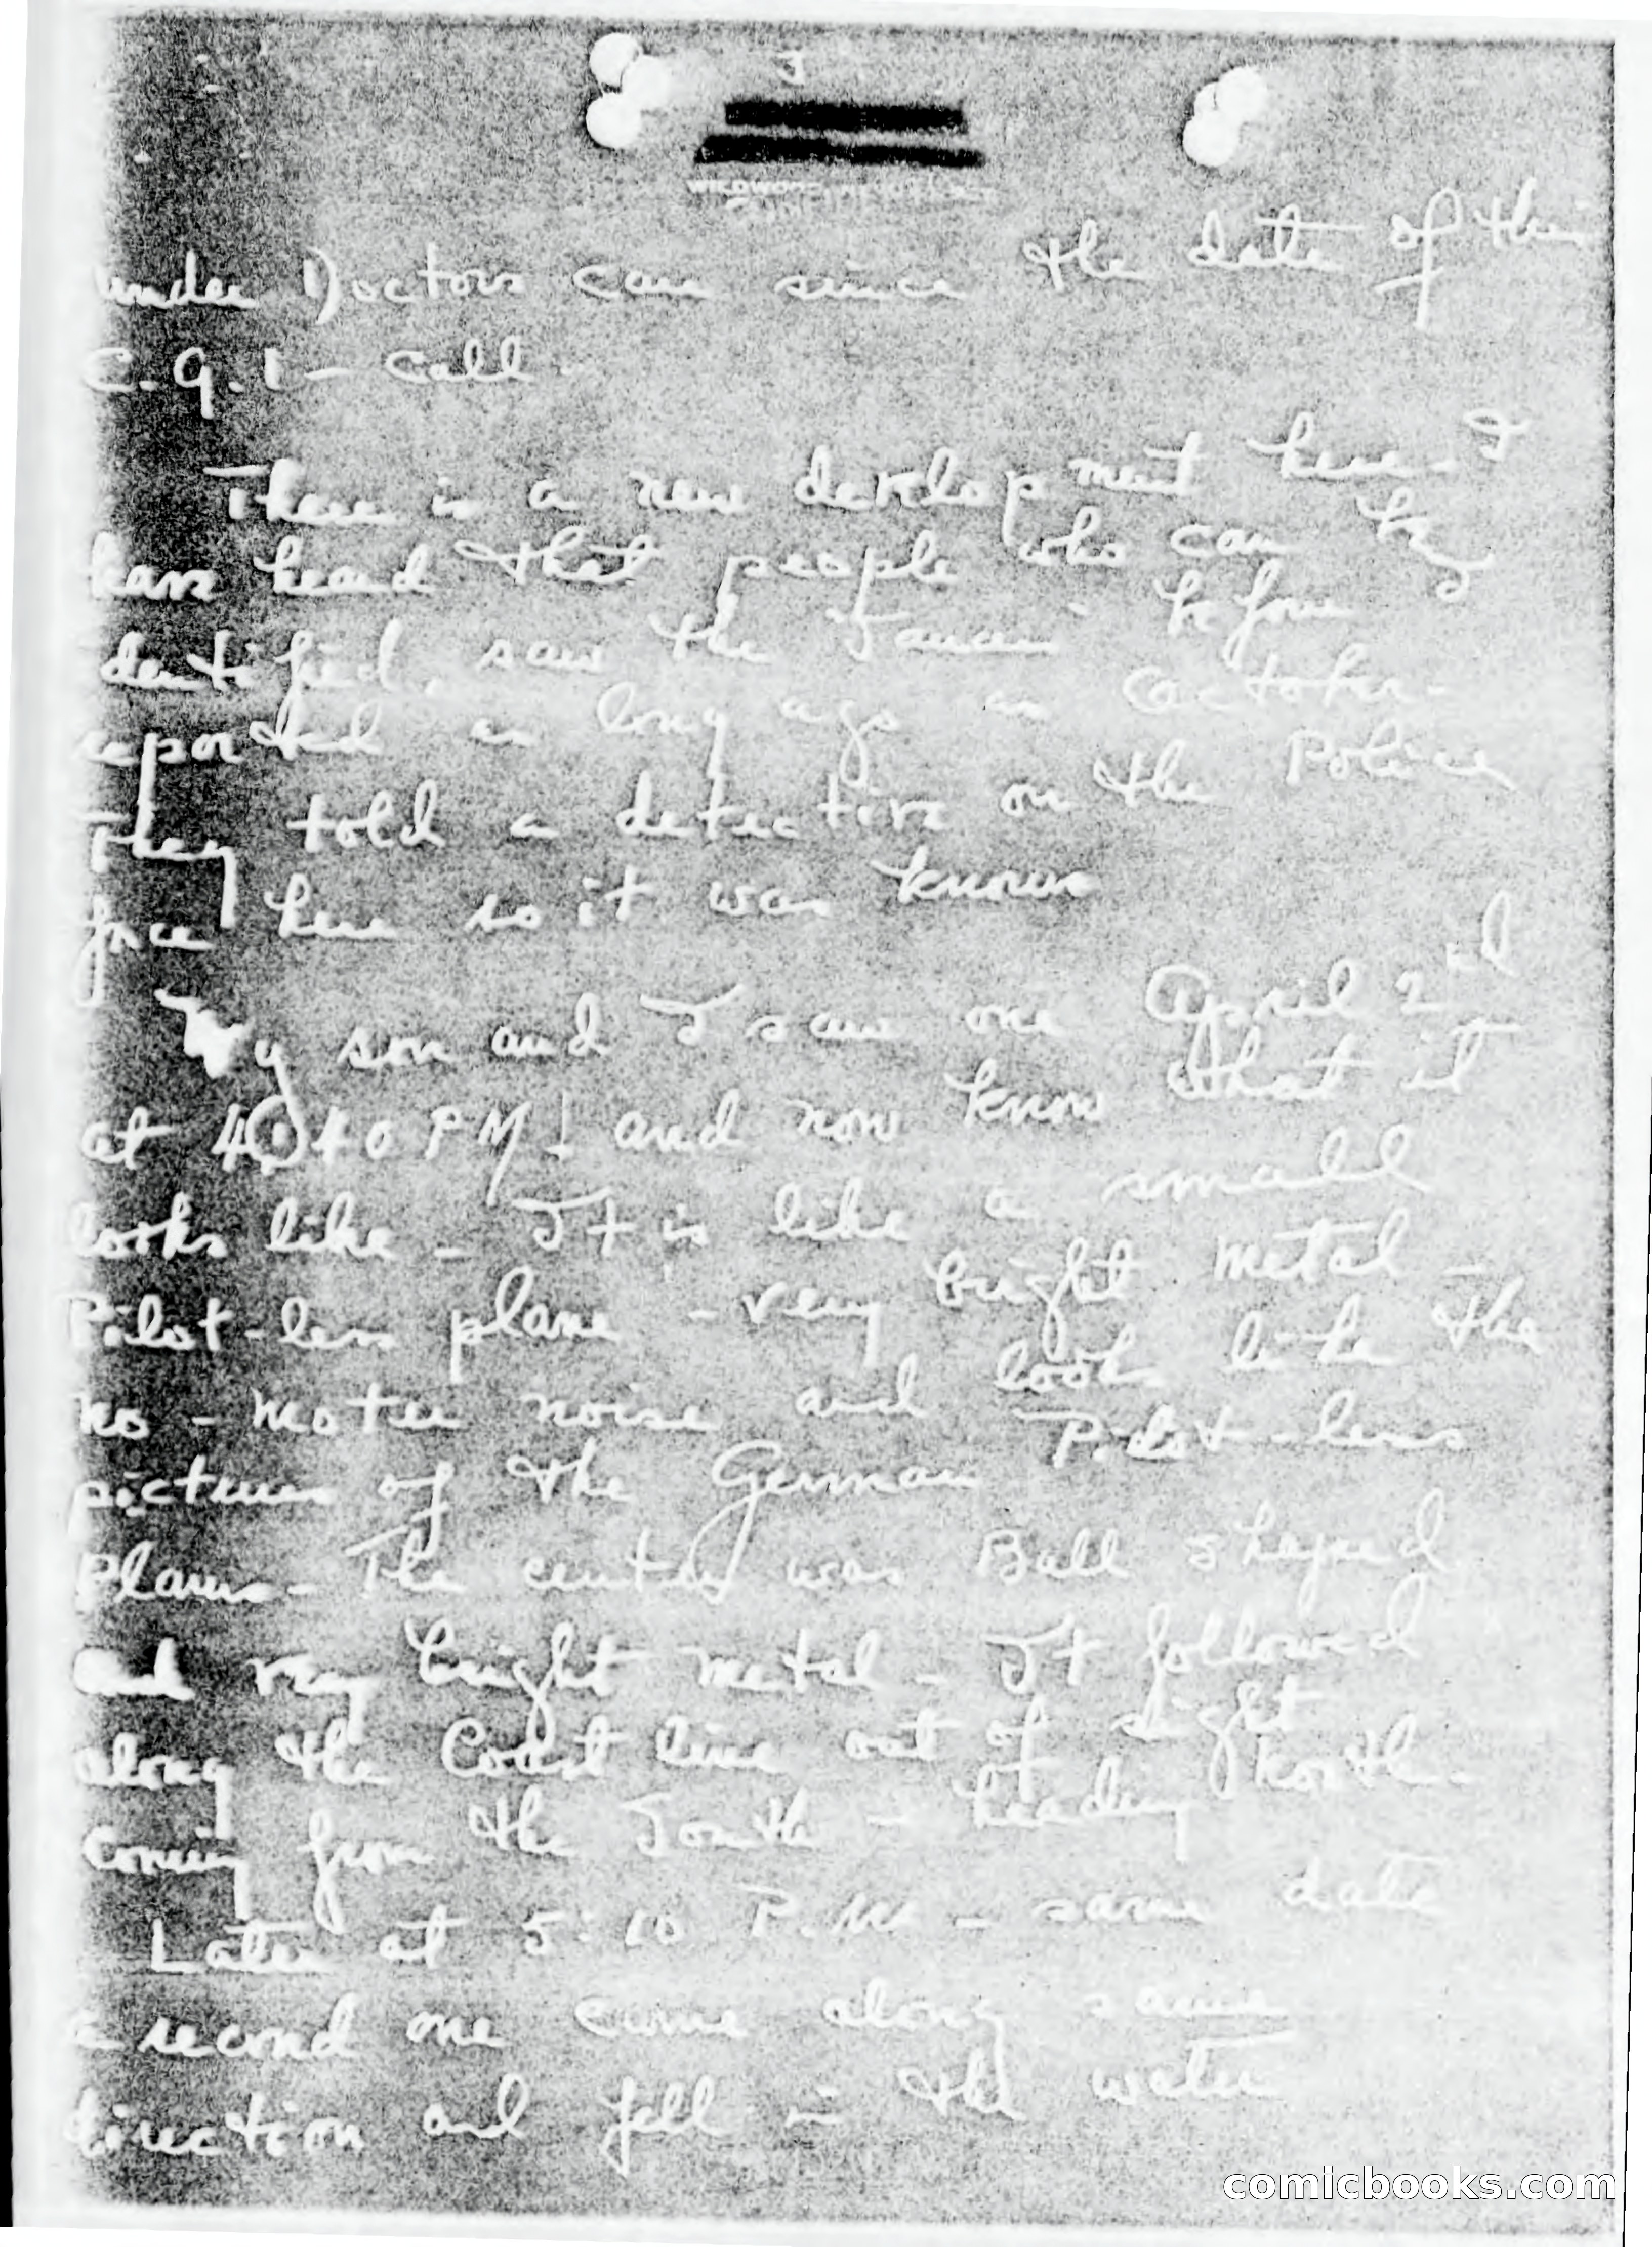 3
under Doctors care since the date of this
C.Q.1 - Call -
There is a new development here - I
have heard that people who can be
identified, saw the Saucer before
reported as long ago as October -
They told a detective on the Police
force here so it was known
My son and I saw one April 2nd
at 4:40 PM and now know what it
looks like - It is like a small
Pilot-less plane - very bright metal -
no - motor noise and looks like the
pictures of the German Pilot-less
Planes - The center was Ball shaped
and very bright metal - It followed
along the Coast line out of sight
coming from the South - heading North -
Later at 5:10 P.M. - same date
a second one came along same
direction and fell in the water
comicbooks.com